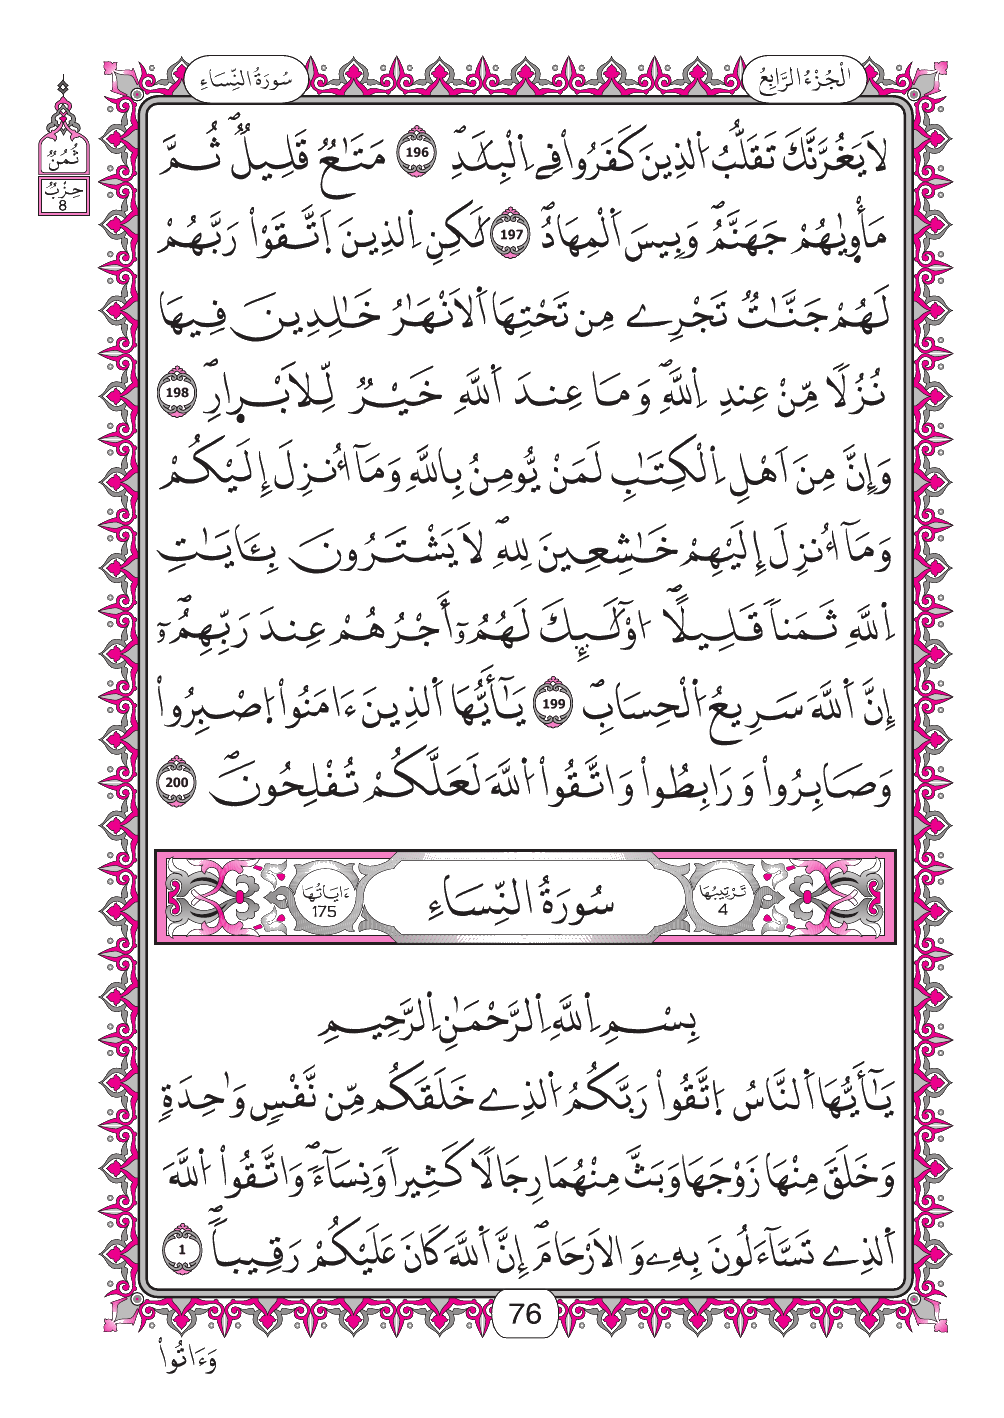 الْجُزْءُ الرَّابِعُ
سُورَةُ النِّسَاءِ
ثُمُنُ
حِزْبٌ
8
لَا يَغُرَّنَّكَ تَقَلُّبُ اَ۬لذِينَ كَفَرُواْ فِے اِ۬لْبِلَٰدِۖ 196 مَتَٰعٞ قَلِيلٞۖ ثُمَّ
مَأْو۪يٰهُمْ جَهَنَّمُۖ وَبِيسَ اَ۬لْمِهَادُۖ 197 لَٰكِنِ اِ۬لذِينَ اَ۪تَّقَوْاْ رَبَّهُمْ
لَهُمْ جَنَّٰتٞ تَجْرِے مِن تَحْتِهَا اَ۬لَانْهَٰرُ خَٰلِدِينَ فِيهَا
نُزُلاٗ مِّنْ عِندِ اِ۬للَّهِۖ وَمَا عِندَ اَ۬للَّهِ خَيْرٞ لِّلَابْر۪ارِۖ 198
وَإِنَّ مِنَ اَهْلِ اِ۬لْكِتَٰبِ لَمَنْ يُّومِنُ بِاللَّهِ وَمَآ أُنزِلَ إِلَيْكُمْ
وَمَآ أُنزِلَ إِلَيْهِمْ خَٰشِعِينَ لِلهِۖ لَا يَشْتَرُونَ بِـَٔايَٰتِ
اِ۬للَّهِ ثَمَناٗ قَلِيلاًۖ ا۟وْلَٰٓئِكَ لَهُمُۥٓ أَجْرُهُمْ عِندَ رَبِّهِمُۥٓۖ
إِنَّ اَ۬للَّهَ سَرِيعُ اُ۬لْحِسَابِۖ 199 يَٰٓأَيُّهَا اَ۬لذِينَ ءَامَنُواْ اُ۪صْبِرُواْ
وَصَابِرُواْ وَرَابِطُواْ وَاتَّقُواْ اُ۬للَّهَ لَعَلَّكُمْ تُفْلِحُونَۖ 200
تَرْتِيبُهَا 4
سُورَةُ النِّسَاءِ
ءَايَاتُهَا 175
بِسْمِ اِ۬للَّهِ اِ۬لرَّحْمَٰنِ اِ۬لرَّحِيمِ
يَٰٓأَيُّهَا اَ۬لنَّاسُ اُ۪تَّقُواْ رَبَّكُمُ اُ۬لذِے خَلَقَكُم مِّن نَّفْسٖ وَٰحِدَةٖ
وَخَلَقَ مِنْهَا زَوْجَهَا وَبَثَّ مِنْهُمَا رِجَالاٗ كَثِيراٗ وَنِسَآءٗۖ وَاتَّقُواْ اُ۬للَّهَ
اَ۬لذِے تَسَّآءَلُونَ بِهِۦ وَالَارْحَامَۖ إِنَّ اَ۬للَّهَ كَانَ عَلَيْكُمْ رَقِيباٗۖ 1
76
وَءَاتُواْ